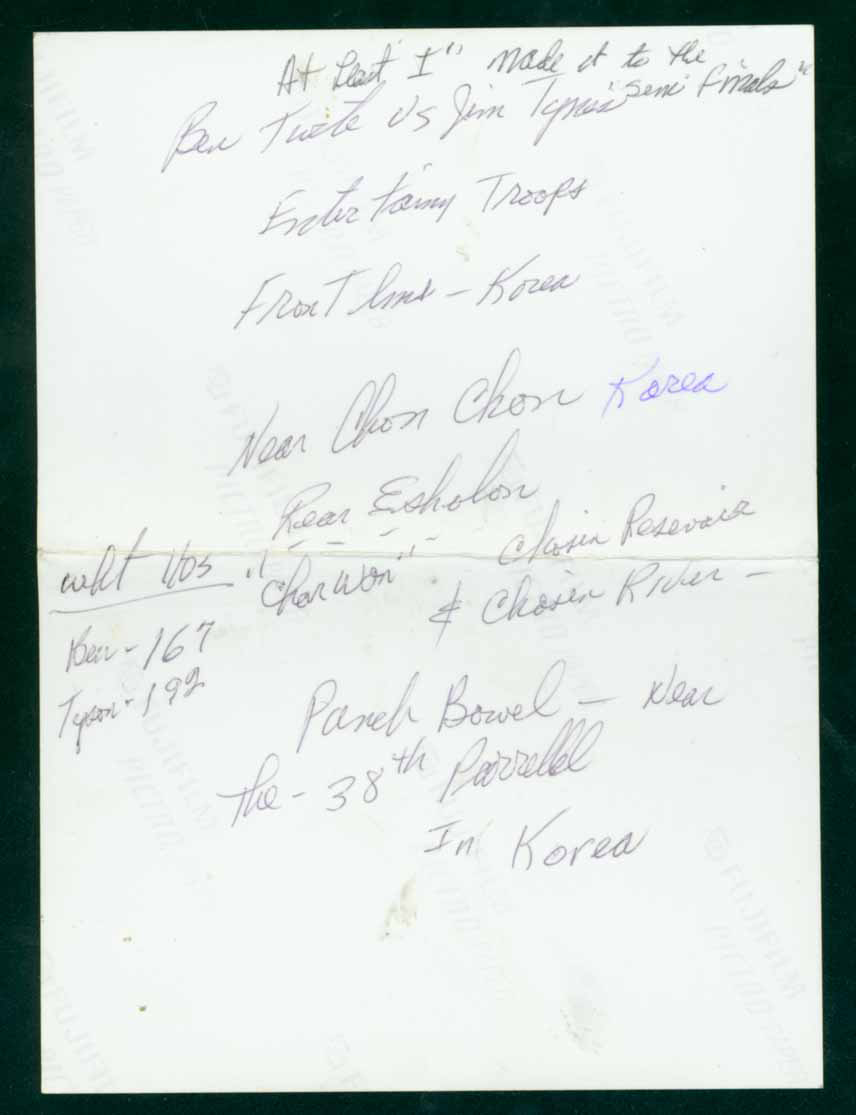 At Least I" made it to the
"Semi Finals"
Ben Tuete Vs Jim Tyson
Entertaing Troops
Front lines - Korea
Near Chon Chon Korea
Rear Esholon
"Charwon"
Chosin Resevoir
& Chosen River -
waht was
Ben - 167
Tyson - 192
Panch Bowel - Near
the - 38th Parrellel
In Korea
©FUJIFILM